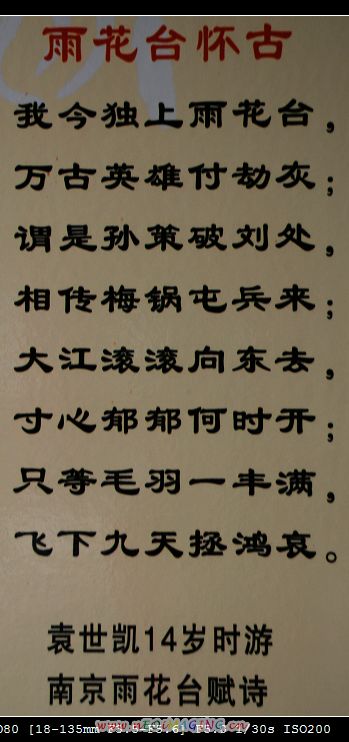 雨花台怀古
我今独上雨花台，
万古英雄付劫灰；
谓是孙策破刘处，
相传梅锅屯兵来；
大江滚滚向东去，
寸心郁郁何时开；
只等毛羽一丰满，
飞下九天拯鸿哀。
袁世凯14岁时游
南京雨花台赋诗